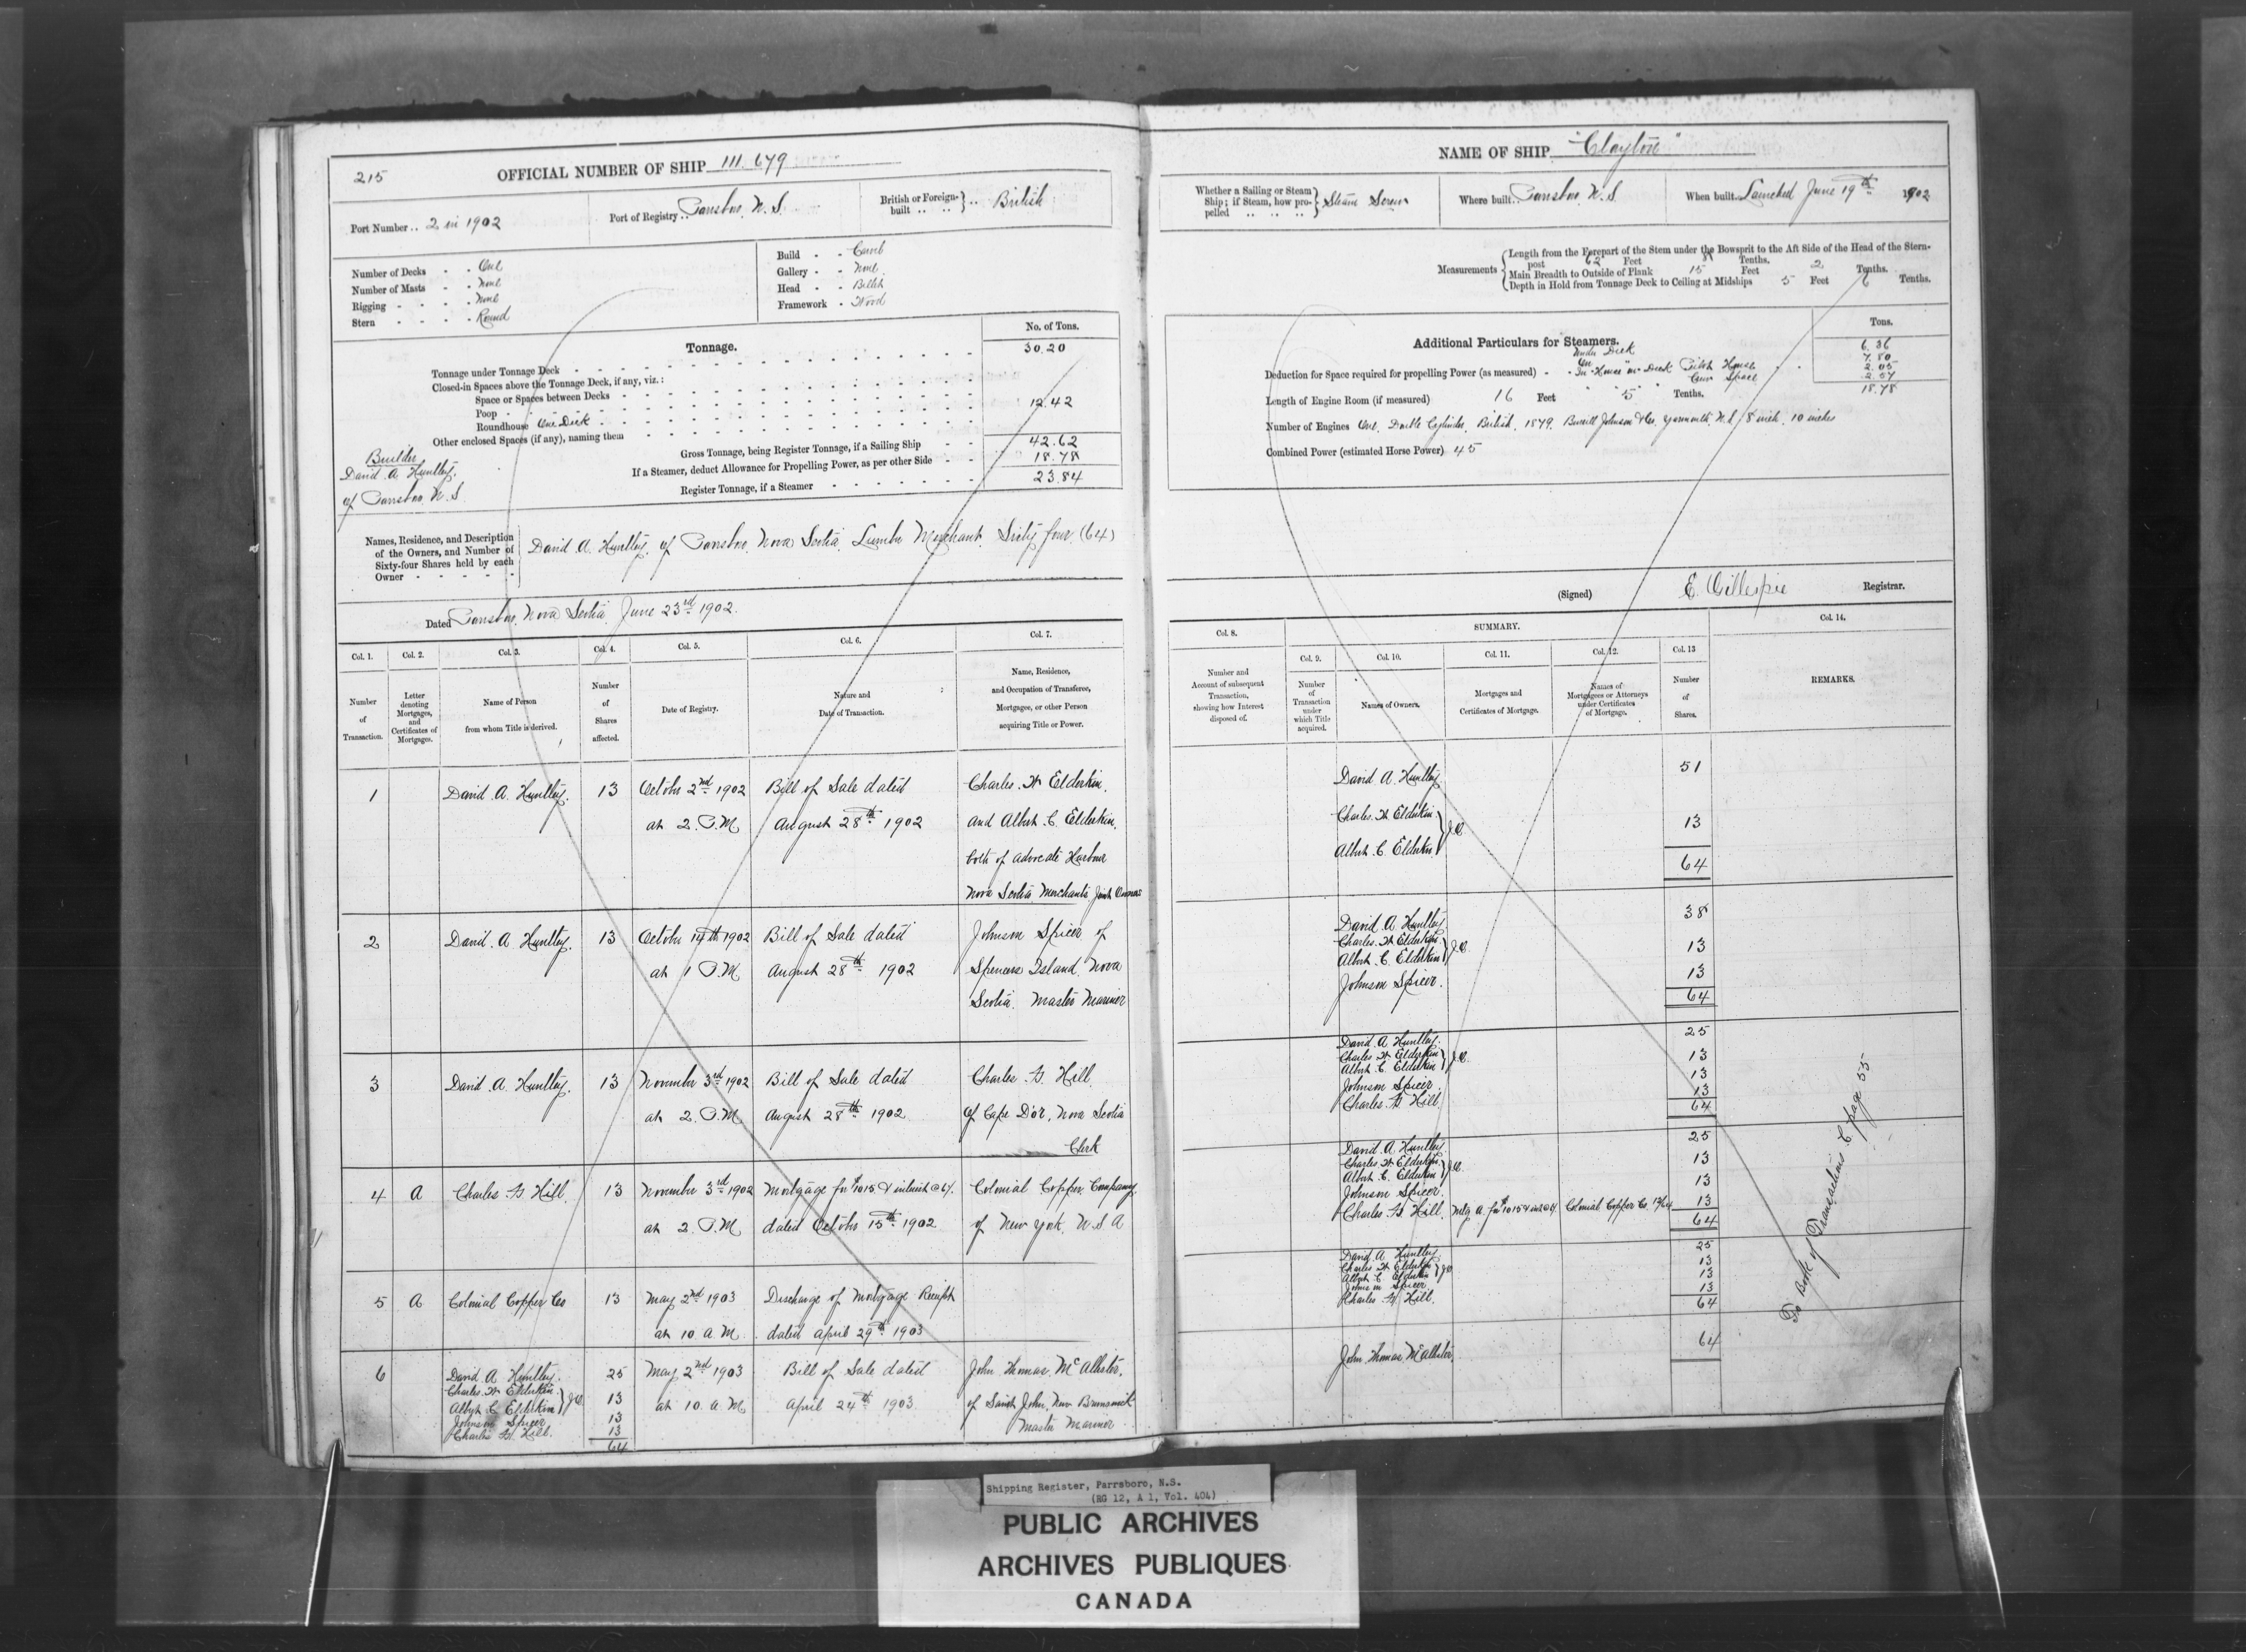 215
OFFICIAL NUMBER OF SHIP 111.679
Port Number .. 2 in 1902
Port of Registry .. Parrsboro, N.S.
British or Foreign-built .. British
Number of Decks - - One
Number of Masts - - None
Rigging - - - - None
Stern - - - - Round
Build - - Carvel
Gallery - - None
Head - - Billet
Framework - Wood
Tonnage.
No. of Tons.
Tonnage under Tonnage Deck 30.20
Closed-in Spaces above the Tonnage Deck, if any, viz.:
Space or Spaces between Decks
Poop
Roundhouse On Deck 12.42
Other enclosed Spaces (if any), naming them
Gross Tonnage, being Register Tonnage, if a Sailing Ship 42.62
If a Steamer, deduct Allowance for Propelling Power, as per other Side 18.78
Register Tonnage, if a Steamer 23.84
Builder
David A. Huntley,
of Parrsboro N.S.
Names, Residence, and Description
of the Owners, and Number of
Sixty-four Shares held by each
Owner
David A. Huntley, of Parrsboro, Nova Scotia, Lumber Merchant, Sixty four (64)
Dated Parrsboro, Nova Scotia, June 23rd 1902.
Col. 1. Col. 2. Col. 3. Col. 4. Col. 5. Col. 6. Col. 7.
Number of Transaction.
Letter denoting Mortgages, and Certificates of Mortgages.
Name of Person from whom Title is derived.
Number of Shares affected.
Date of Registry.
Nature and Date of Transaction.
Name, Residence, and Occupation of Transferee, Mortgagee, or other Person acquiring Title or Power.
1 David A. Huntley. 13 October 2nd 1902 Bill of Sale dated Charles W Elderkin,
at 2 P.M. August 28th 1902 and Albert C. Elderkin,
both of Advocate Harbour
Nova Scotia Merchants Joint Owners
2 David A Huntley. 13 October 14th 1902 Bill of Sale dated Johnson Spicer of
at 1 P.M August 28th 1902 Spencers Island, Nova
Scotia. Master Mariner
3 David A. Huntley. 13 November 3rd 1902 Bill of Sale dated Charles G. Hill
at 2 P.M August 28th 1902 of Cape D'or, Nova Scotia
Clerk
4 A Charles G Hill. 13 November 3rd 1902 Mortgage for $1015 & interest @ Colonial Copper Company,
at 2 P.M dated October 15th 1902 of New York, U.S.A
5 A Colonial Copper Co 13 May 2nd 1903 Discharge of Mortgage Receipt
at 10 A.M. dated April 29th 1903
6 David A Huntley. 25 May 2nd 1903 Bill of Sale dated John Thomas McAllister,
Charles W Elderkin 13 at 10 A.M April 24th 1903 of Saint John, New Brunswick
Albert C Elderkin } J.O. Master Mariner
Johnson Spicer 13
Charles G. Hill. 13
64
NAME OF SHIP "Clayton"
Whether a Sailing or Steam Ship; if Steam, how propelled Steam Screw
Where built .. Parrsboro, N.S.
When built .. Launched June 19th 1902
Measurements
Length from the Forepart of the Stem under the Bowsprit to the Aft Side of the Head of the Stern-
post 62 Feet Tenths.
Main Breadth to Outside of Plank 15 Feet 2 Tenths.
Depth in Hold from Tonnage Deck to Ceiling at Midships 5 Feet 6 Tenths.
Additional Particulars for Steamers.
Tons.
Under Deck 6.36
Deduction for Space required for propelling Power (as measured) In House on Deck 7.80
Pilot House 2.05
Crew Space 2.57
18.78
Length of Engine Room (if measured) 16 Feet 5 Tenths.
Number of Engines One, Double Cylinder, British, 1879. Burrill Johnson & Co. Yarmouth N.S. 8 inch. 10 inches
Combined Power (estimated Horse Power) 45
(Signed) E. Gillespie Registrar.
SUMMARY.
Col. 8. Col. 9. Col. 10. Col. 11. Col. 12. Col. 13 Col. 14.
Number and Account of subsequent Transaction, showing how Interest disposed of.
Number of Transaction under which Title acquired.
Names of Owners.
Mortgages and Certificates of Mortgage.
Names of Mortgagees or Attorneys under Certificates of Mortgage.
Number of Shares.
REMARKS.
David A. Huntley 51
Charles W Elderkin } J.O. 13
Albert C. Elderkin
64
David A Huntley 38
Charles W Elderkin } J.O. 13
Albert C. Elderkin
Johnson Spicer. 13
64
David A Huntley. 25
Charles W Elderkin } J.O. 13
Albert C Elderkin
Johnson Spicer 13
Charles G Hill. 13
64
David A Huntley. 25
Charles W Elderkin } J.O. 13
Albert C. Elderkin
Johnson Spicer. 13
Charles G Hill Mtg A. for $1015 & int @ Colonial Copper Co. 13/64 13
64
David A Huntley 25
Charles W Elderkin } J.O. 13
Albert C Elderkin
Johnson Spicer 13
Charles G. Hill. 13
64
John Thomas McAllister, 64
To Book of Transactions C page 55
Shipping Register, Parrsboro, N.S.
(RG 12, A 1, Vol. 404)
PUBLIC ARCHIVES
ARCHIVES PUBLIQUES
CANADA